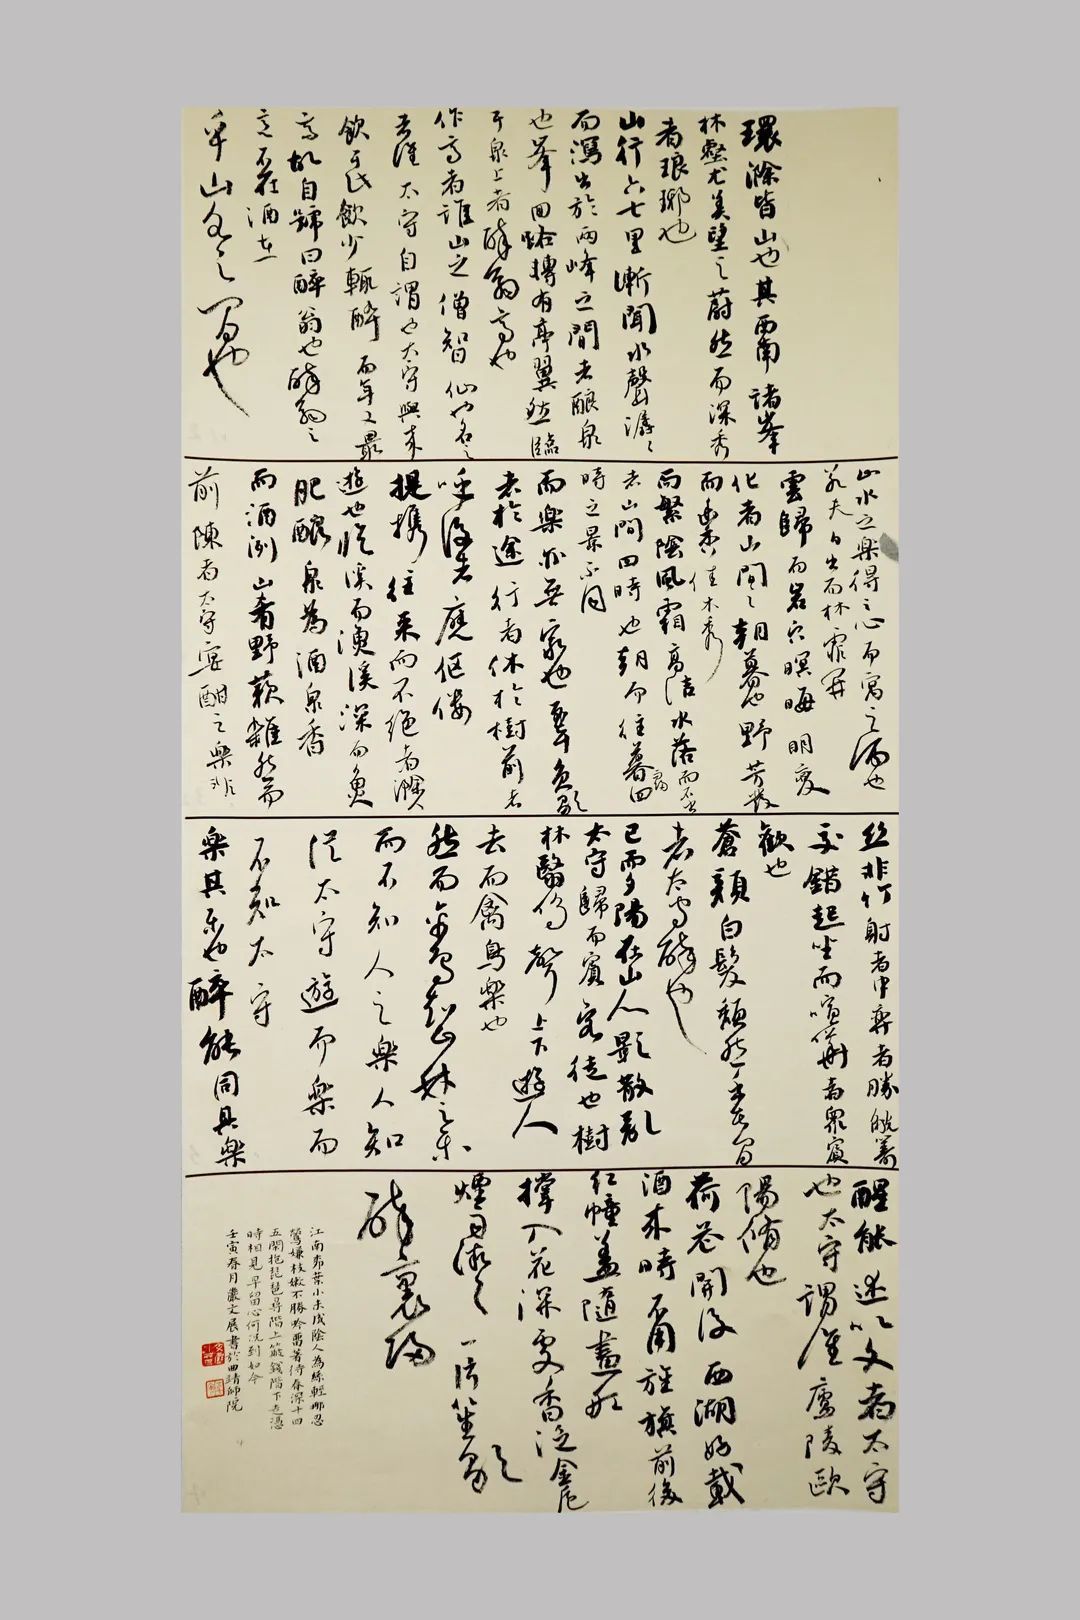 環滁皆山也其西南諸峯
林壑尤美望之蔚然而深秀
者琅琊也
山行六七里漸聞水聲潺〻
而瀉出於兩峰之間者釀泉
也峯回路轉有亭翼然臨
于泉上者醉翁亭也
作亭者誰山之僧智仙也名之
者誰太守自謂也太守與来
飲于此飲少輒醉而年又最
高故自號曰醉翁也醉翁之
意不在酒在
乎山水之間也
山水之樂得之心而寓之酒也
若夫日出而林霏開
雲歸而岩穴暝晦明變
化者山間之朝暮也野芳發
而幽香佳木秀
而繁陰風霜高潔水落而石出
者山間四時也朝而往暮而歸四
時之景不同
而樂亦無窮也至於負者歌
於途行者休於樹前者
呼後者應傴僂
提攜往来而不绝者滁人
遊也臨溪而漁溪深而魚
肥釀泉為酒泉香
而酒洌山肴野蔌雜然而
前陳者太守宴酣之樂非
丝非竹射者中弈者勝觥籌
交錯起坐而喧嘩者衆賓
歡也
蒼顏白髮頹然乎其間
者太守醉也
已而夕陽在山人影散亂
太守歸而賓客從也樹
林翳鳴聲上下遊人
去而禽鳥樂也
然而禽鳥知山林之樂
而不知人之樂人知
從太守遊而樂而
不知太守
樂其樂也醉能同其樂
醒能述以文者太守
也太守謂誰廬陵歐
陽脩也
荷花開後西湖好載
酒来時不用旌旗前後
红幢盖隨畫船
撑入花深處香泛金卮
煙雨微〻一片笙歌
醉裏歸
江南柳葉小未成陰人為絲輕那忍
鶯嫌枝嫩不勝吟留著待春深十四
五閑抱琵琶尋階上簸錢階下走恁
時相見早留心何况到如今
壬寅春月嚴文展書於曲靖師院